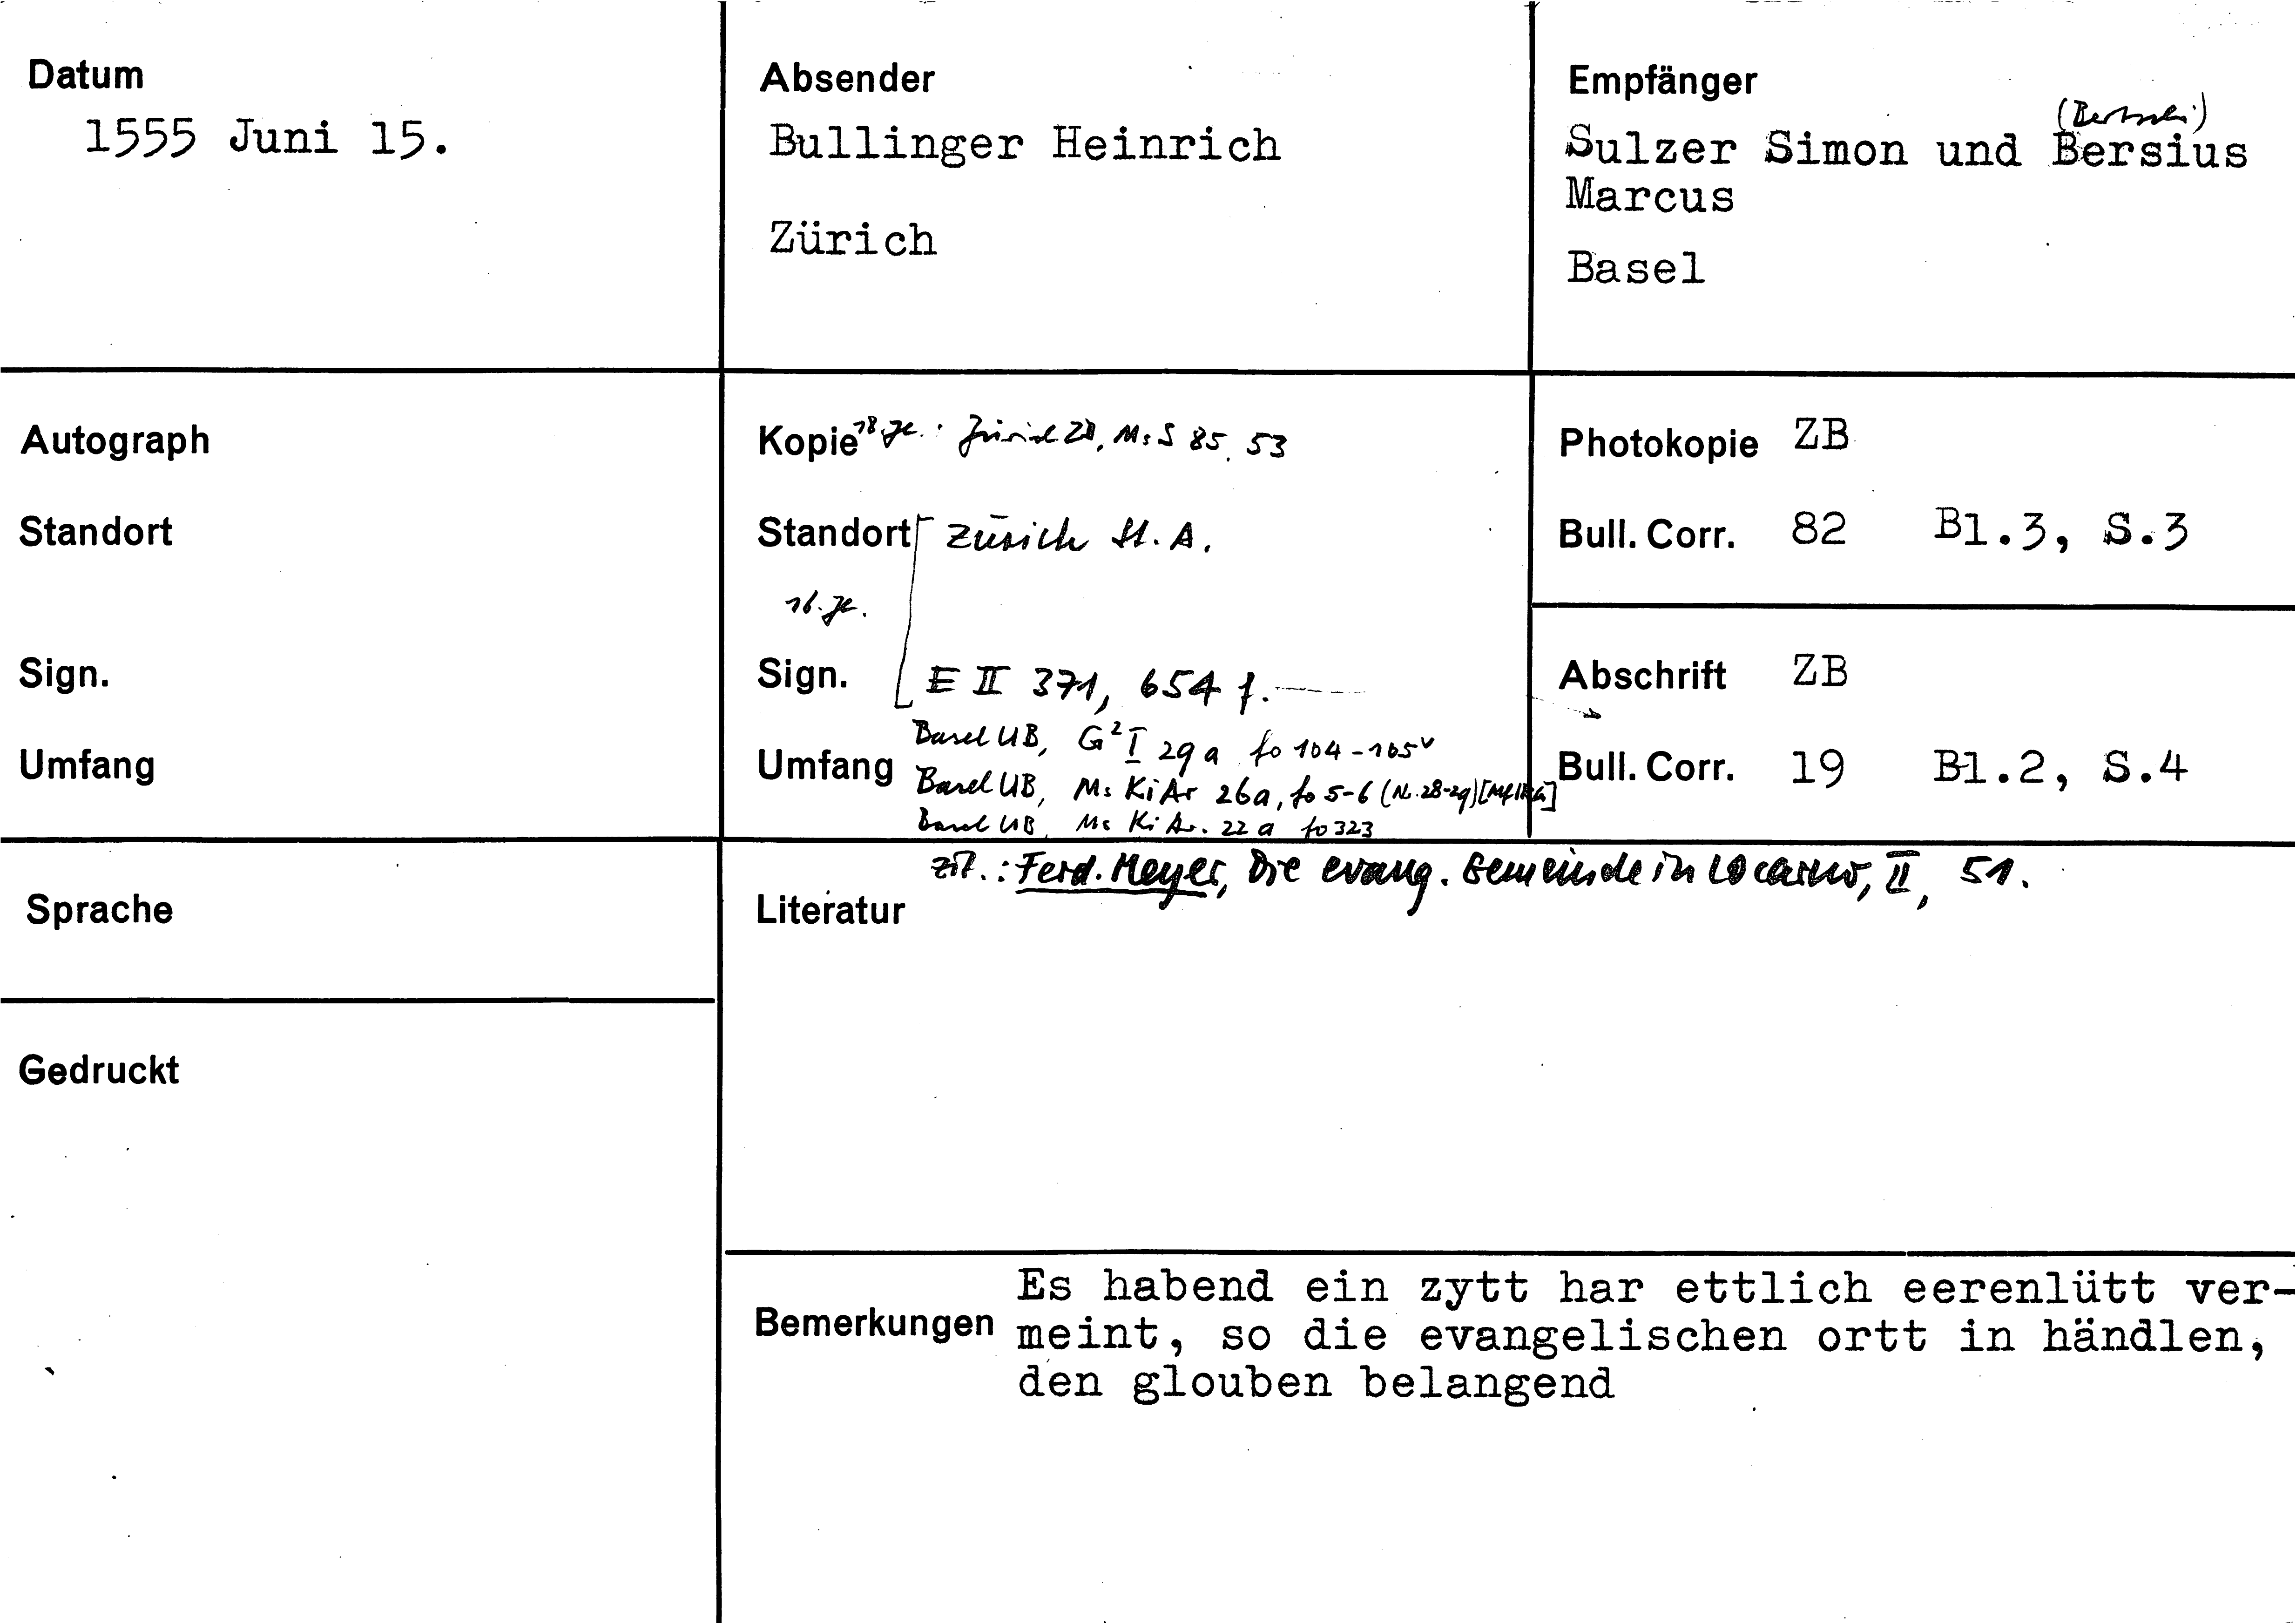 Datum
1555 Juni 15.
Absender
Bullinger Heinrich
Zürich
Empfänger
(Bertschi)
Sulzer Simon und Bersius
Marcus
Basel
Autograph
Standort
Sign.
Umfang
Kopie 18. Jh.: Zürich ZB, Ms S 85, 53
Standort Zürich St. A.
16. Jh.
Sign. E II 371, 654 f.
Basel UB, G² I 29 a fo 104-105v
Umfang Basel UB, Ms Ki Ar 26a, fo 5-6 (Nr. 28-29)
Basel UB, Ms Ki Ar. 22 a fo 323
Photokopie ZB
Bull. Corr. 82 Bl.3, S.3
Abschrift ZB
Bull. Corr. 19 Bl.2, S.4
Sprache
Gedruckt
zit.: Ferd. Meyer, Die evang. Gemeinde in Locarno, II, 51.
Literatur
Es habend ein zytt har ettlich eerenlütt ver-
Bemerkungen meint, so die evangelischen ortt in händlen,
den glouben belangend